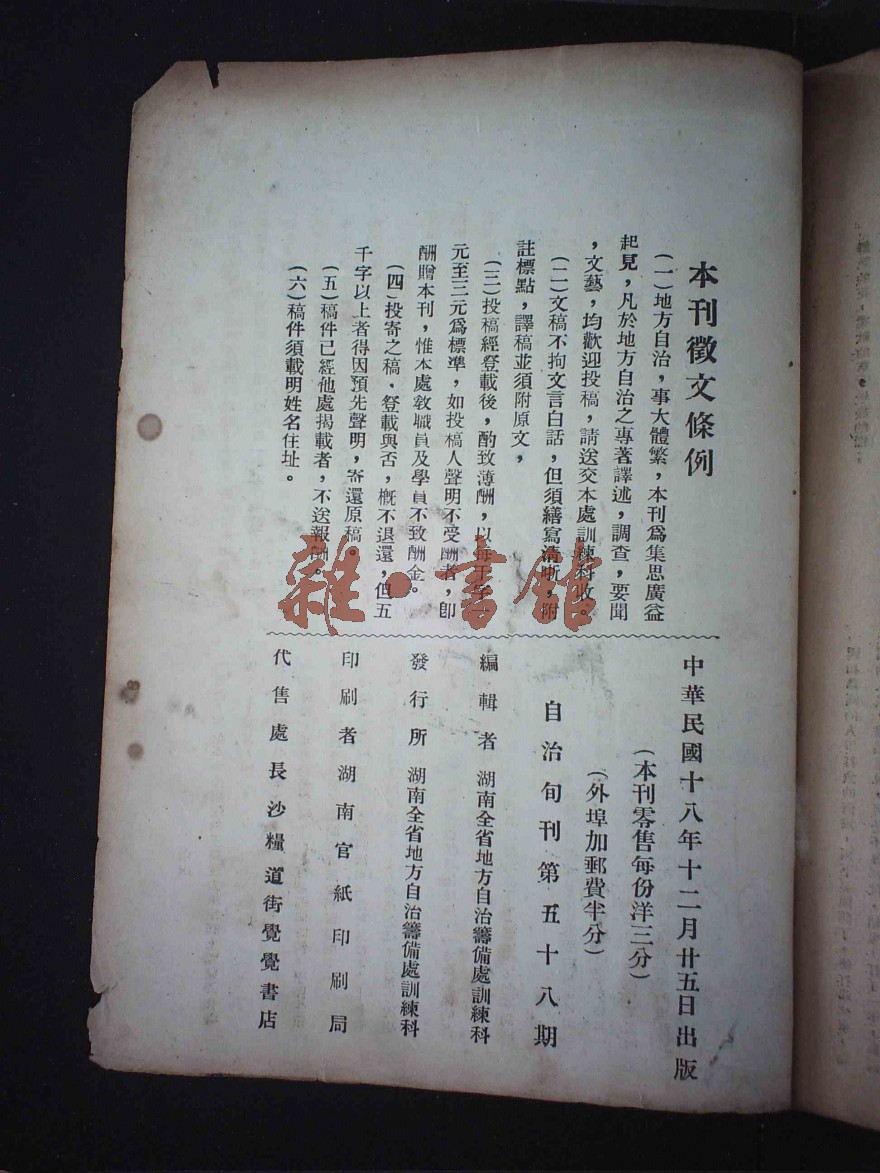 本刊徵文條例
(一)地方自治,事大體繁,本刊爲集思廣益
起見,凡於地方自治之專著譯述,調查,要聞
,文藝,均歡迎投稿,請送交本處訓練科收。
(二)文稿不拘文言白話,但須繕寫清晰,附
註標點,譯稿並須附原文,
(三)投稿經登載後,酌致薄酬,以每千字一
元至三元爲標準,如投稿人聲明不受酬者,卽
酬贈本刊,惟本處敎職員及學員不致酬金。
(四)投寄之稿,登載與否,槪不退還,但五
千字以上者得因預先聲明,寄還原稿。
(五)稿件已經他處揭載者,不送報酬。
(六)稿件須載明姓名住址。
中華民國十八年十二月廿五日出版
(本刊零售每份洋三分)
(外埠加郵費半分)
自治旬刊第五十八期
編輯者 湖南全省地方自治籌備處訓練科
發行所 湖南全省地方自治籌備處訓練科
印刷者湖南官紙印刷局
代售處長沙糧道街覺覺書店
雜·書館